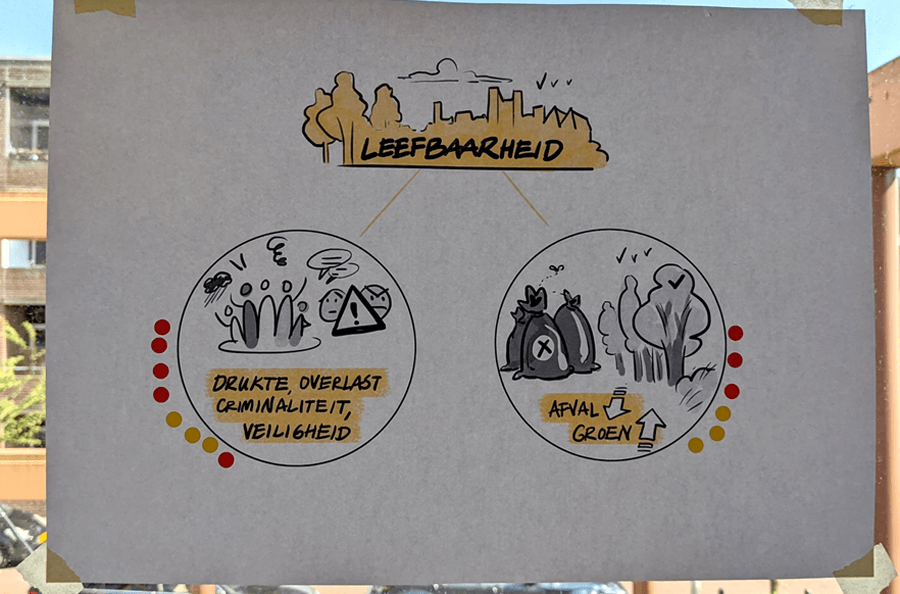 LEEFBAARHEID
DRUKTE, OVERLAST
CRIMINALITEIT,
VEILIGHEID
AFVAL
GROEN